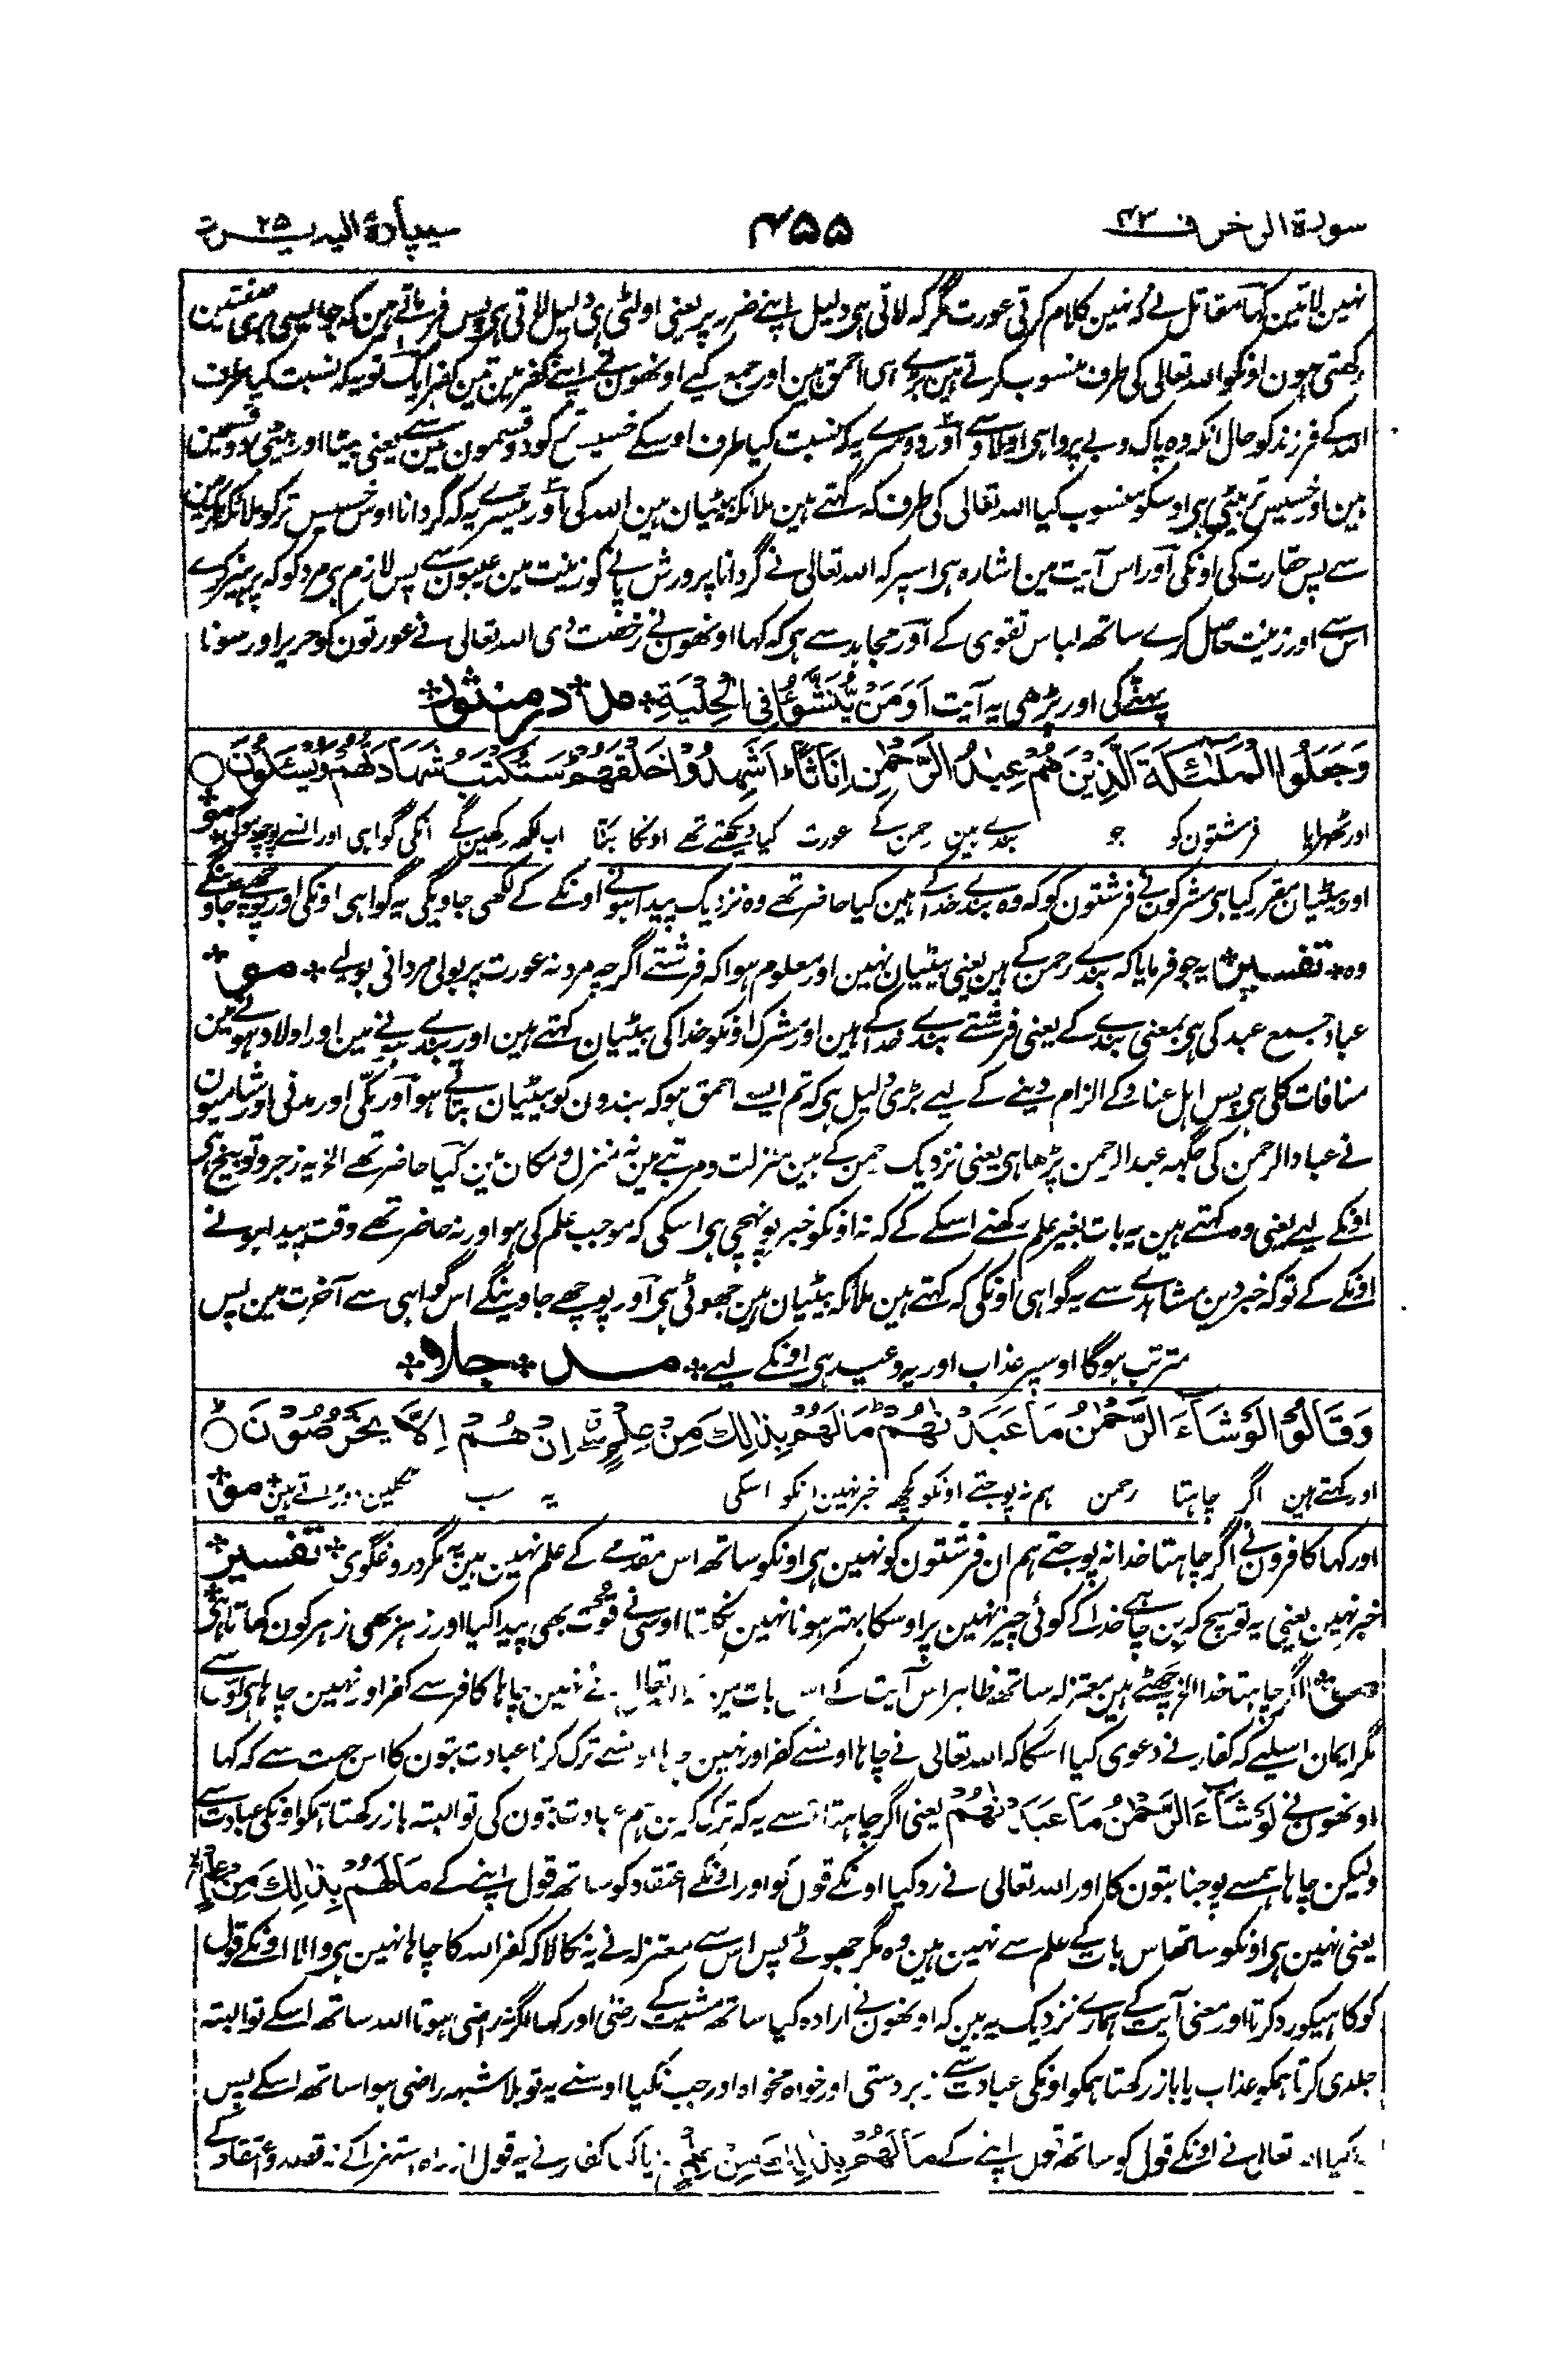 سورة الزخرف ٤٣
٤٥٥
سیپارة الیه یرد ٢٥
نہین لاتین کہا مقاتل نے کہ نہین کلام کرتی عورت مگر کہ لاتی ہی دلیل اپنے ضرر پر یعنی اولٹی ہی دلیل لاتی ہی پس فرماتے ہین کہ جو ایسی بری صفتین
رکھتی ہون اونکو اللہ تعالی کی طرف منسوب کرتے ہین بڑے ہی احمق ہین اور جمع کیے اونھون نے اپنے کفر مین تین کفر ایک تو یہ کہ نسبت کیا طرف
اللہ کے فرزند کو حال انکہ وہ پاک و بے پروا ہی اولاد سے اور دوسرے یہ کہ نسبت کیا طرف اوسکے خسیس تر کو دو قسمون مین سے یعنی بیٹا اور بیٹی دو قسمین
ہین اور خسیس تر بیٹی ہی اوسکو منسوب کیا اللہ تعالی کی طرف کہ کہتے ہین ملائکہ بیٹیان ہین اللہ کی اور تیسرے یہ کہ گردانا اوس خسیس تر کو ملائکہ مکرمین
سے پس حقارت کی اونکی اور اس آیت مین اشارہ ہی اسپر کہ اللہ تعالی نے گردانا پرورش پانے کو زینت مین عیبون سے پس لازم ہی مرد کو کہ پرہیز کرے
اس سے اور زینت حاصل کرے ساتھ لباس تقوی کے اور مجاہد سے ہی کہ کہا اونھون نے رخصت دی اللہ تعالی نے عورتون کو حریر اور سونا
پہننے کی اور پڑھی یہ آیت اَوَمَنْ يُّنَشَّؤُا فِى الْحِلْيَةِ ٭ مل ٭ در منثور ٭
وَجَعَلُوا الْمَلٰٓئِكَةَ الَّذِيْنَ هُمْ عِبٰدُ الرَّحْمٰنِ اِنَاثًا ؕ اَشَهِدُوْا خَلْقَهُمْ ؕ سَتُكْتَبُ شَهَادَتُهُمْ وَيُسْئَلُوْنَ ○
اور ٹھہرایا فرشتون کو جو بندے ہین رحمن کے عورت کیا دیکھتے تھے اونکا بننا اب لکھ رکھین گے انکی گواہی اور انسے پوچھ ہوگی مو ٭
اور بیٹیان مقرر کیا ہی مشرکون نے فرشتون کو کہ وہ بندے خدا کے ہین کیا حاضر تھے وہ نزدیک پیدا ہونے اونکے کے لکھی جاویگی یہ گواہی اونکی اور پوچھے جاوینگے
وہ ٭ تفسیر ٭ یہ جو فرمایا کہ بندے رحمن کے ہین یعنی بیٹیان نہین اور معلوم ہوا کہ فرشتے اگرچہ مرد نہ عورت پر بولی مردانی بولیے ٭ مو ٭
عباد جمع عبد کی ہی بمعنی بندے کے یعنی فرشتے بندے خدا کے ہین اور مشرک اونکو خدا کی بیٹیان کہتے ہین اور بندے ہونے مین اور اولاد ہونے مین
منافات کلی ہی پس اہل عناد کے الزام دینے کے لیے بڑی دلیل ہی کہ تم ایسے احمق ہو کہ بندون کو بیٹیان بتاتے ہو اور مکّی اور مدنی اور شامیون
نے عباد الرحمن کی جگہہ عبد الرحمن پڑھا ہی یعنی نزدیک رحمن کے ہین منزلت و مرتبے مین نہ منزل و مکان مین کیا حاضر تھے الخ یہ زجر و توبیخ ہی
اونکے لیے یعنی وہ کہتے ہین یہ بات بغیر علم رکھنے اسکے کے کہ نہ اونکو خبر پونہچی ہی اسکی کہ موجب علم کی ہو اور نہ حاضر تھے وقت پیدا ہونے
اونکے کے تو کہ خبر دین مشاہدے سے یہ گواہی اونکی کہ کہتے ہین ملائکہ بیٹیان ہین جھوٹی ہی اور پوچھے جاوینگے اس گواہی سے آخرت مین پس
مترتب ہوگا اوسپر عذاب اور یہ وعید ہی اونکے لیے ٭ مد ٭ جلا ٭
وَقَالُوْا لَوْ شَآءَ الرَّحْمٰنُ مَا عَبَدْنٰهُمْ ؕ مَا لَهُمْ بِذٰلِكَ مِنْ عِلْمٍ ق اِنْ هُمْ اِلَّا يَخْرُصُوْنَ ○
اور کہتے ہین اگر چاہتا رحمن ہم نہ پوجتے اونکو کچھ خبر نہین انکو اسکی یہ سب ٹکلین دوڑاتے ہین ٭ مو ٭
اور کہا کافرون نے اگر چاہتا خدا نہ پوجتے ہم ان فرشتون کو نہین ہی اونکو ساتھ اس مقدمے کے علم نہین ہین یہ مگر دروغگوی ٭ تفسیر ٭
خبر نہین یعنی یہ تو سچ کہ بن چاہے خدا کے کوئی چیز نہین پر اوسکا بہتر ہونا نہین نکلتا اوسی نے قوت بھی پیدا کیا اور زہر بھی زہر کون کھاتا ہی ٭
مو ٭ اگر چاہتا خدا الخ چمٹے ہین معتزلہ ساتھ ظاہر اس آیت کے اس بات مین تعالی نے نہین چاہا کافر سے کفر اور نہین چاہا ہی اوس سے
مگر ایمان اسلیے کہ کفار نے دعوی کیا اسکا کہ اللہ تعالی نے چاہا اونسے کفر اور نہین چاہا اونسے ترک کرنا عبادت بتون کا اس جہت سے کہ کہا
اونھون نے لَوْ شَآءَ الرَّحْمٰنُ مَا عَبَدْنٰهُمْ یعنی اگر چاہتا ہمسے یہ کہ ترک کرین ہم عبادت بتون کی تو البتہ باز رکھتا ہمکو اونکی عبادت سے
ولیکن چاہا ہمسے پوجنا بتون کا اور اللہ تعالی نے رد کیا اونکے قول کو اور اونکے اعتقاد کو ساتھ قول اپنے کے مَا لَهُمْ بِذٰلِكَ مِنْ عِلْمٍ
یعنی نہین ہی اونکو ساتھ اس بات کے علم سے نہین ہین وہ مگر جھوٹے پس اس سے معتزلہ نے یہ نکالا کہ کفر اللہ کا چاہا نہین ہی والا اونکے قول
کو کاہیکو رد کرتا اور معنی آیت کے ہمارے نزدیک یہ ہین کہ اونھون نے ارادہ کیا ساتھ مشیت کے رضی اور کہا اگر نہ راضی ہوتا اللہ ساتھ اسکے تو البتہ
جلدی کرتا ہمکو عذاب یا باز رکھتا ہمکو اونکی عبادت سے زبردستی اور خواہ مخواہ اور جب نکیا اوسنے یہ تو بلا شبہہ راضی ہوا ساتھ اسکے پس
کیا اللہ تعالی نے اونکے قول کو ساتھ قول اپنے کے مَا لَهُمْ بِذٰلِكَ مِنْ عِلْمٍ یا کہا کفار نے یہ قول از راہ استہزا کے نہ قصد و اعتقاد کے